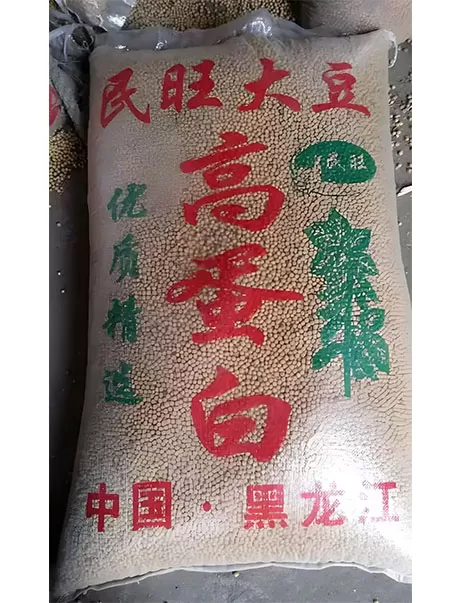 民旺大豆
民旺
优质精选
高蛋白
中国·黑龙江